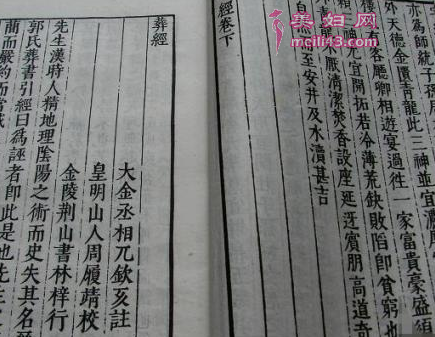 亦為師統子孫
外天德金匱青龍此三神並宜濃厚
樓台有各應卿相遊宴過徃一家富貴豪盛須
神宜開拓若兮薄荒缺敗陷即貧窮也
青龍嚴清潔焚香設座延迓賓朋高道奇
自然至安井及水瀆甚吉
經卷下
葬經
大金丞相兀欽亥註
皇明山人周履靖校
金陵荊山書林梓行
先生漢時人精地理陰陽之術而史失其名
郭氏葬書引經曰為証者即此是也先生
簡而嚴約而當
美妇网
meili43.com